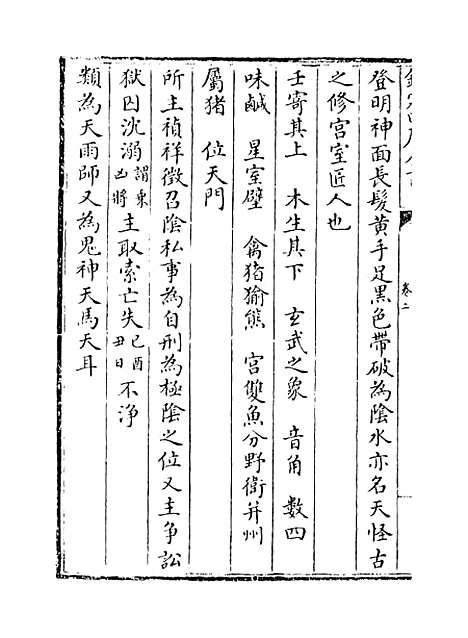 卷二
登明神面長髮黄手足黒色帶破為陰水亦名天怪古
之修宫室匠人也
壬寄其上　木生其下　玄武之象　音角　數四
味鹹　星室壁　禽猪㺄熊　宫雙魚分野衛并州
屬猪　位天門
所主禎祥徴召陰私事為自刑為極陰之位又主争訟
獄囚沈溺謂乗凶將主取索亡失已酉丑日不浄
類為天雨師又為鬼神天馬天耳